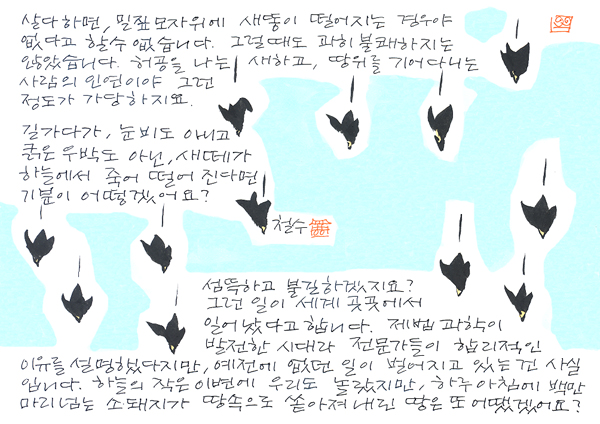 살다 하면, 밀짚모자위에 새똥이 떨어지는 경우야
없다고 할수 없습니다. 그럴때도 과히 불쾌하지는
않았습니다. 허공을 나는 새하고, 땅위를 기어다니는
사람의 인연이야 그런
정도가 가당하지요.
길가다가, 눈비도 아니고
굵은 우박도 아닌, 새떼가
하늘에서 죽어 떨어 진다면
기분이 어떻겠어요?
철수
섬뜩하고 불길하겠지요?
그런 일이 세계 곳곳에서
일어 났다고 합니다. 제법 과학이
발전한 시대라 전문가들이 합리적인
이유를 설명했다지만, 예전에 없던 일이 벌어지고 있는건 사실
입니다. 하늘의 작은 이변에 우리도 놀랐지만, 하루 아침에 백만
마리넘는 소돼지가 땅속으로 쏟아져 내린 땅은 또 어땠겠어요?